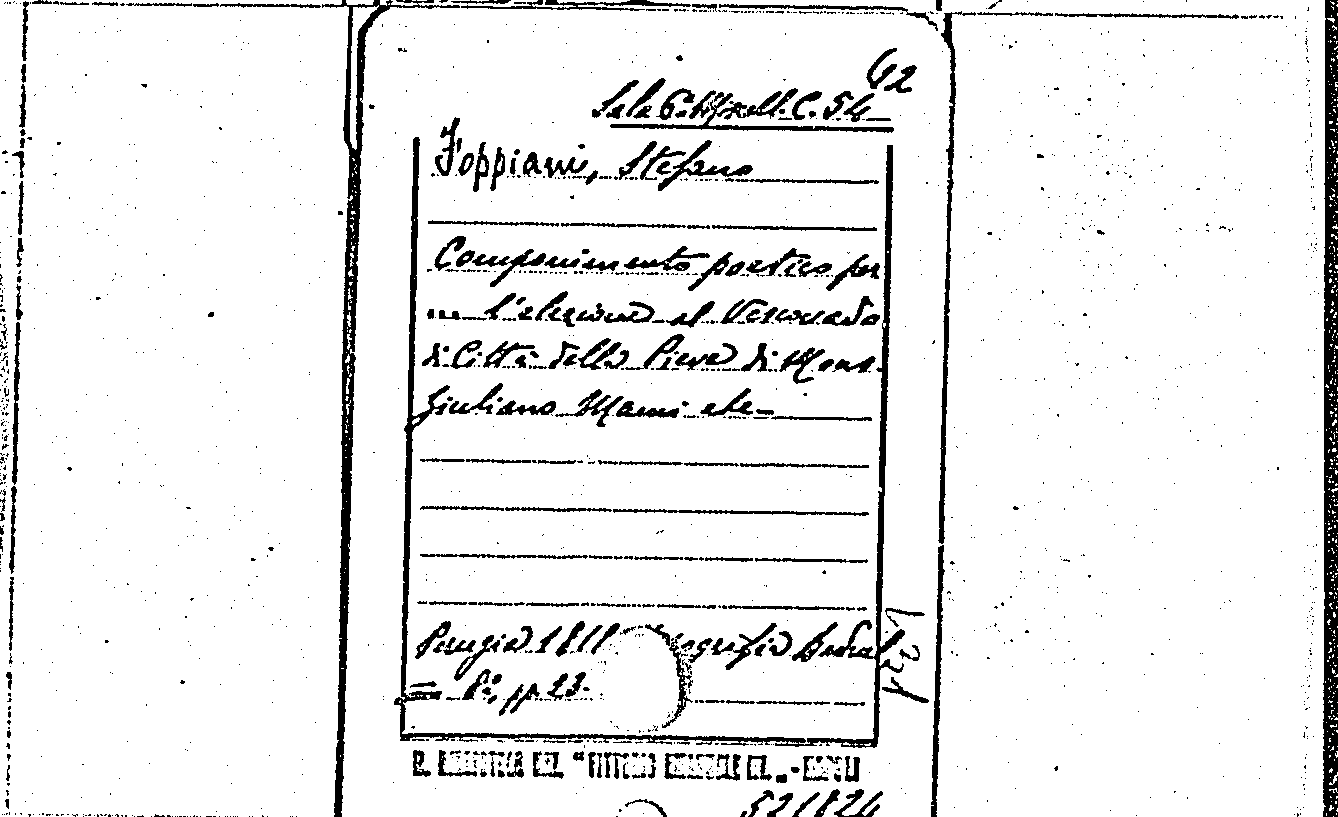 42
Sala 6. Miscell. C. 54
Foppiani, Stefano
Componimento poetico per
... l'elezione al Vescovado
di Città della Pieve di Mons.
Giuliano Mami etc.
Perugia 181 Tipografia
= 8º, pp. 23.
R. BIBLIOTECA NAZ. "VITTORIO EMANUELE III." - NAPOLI
521824